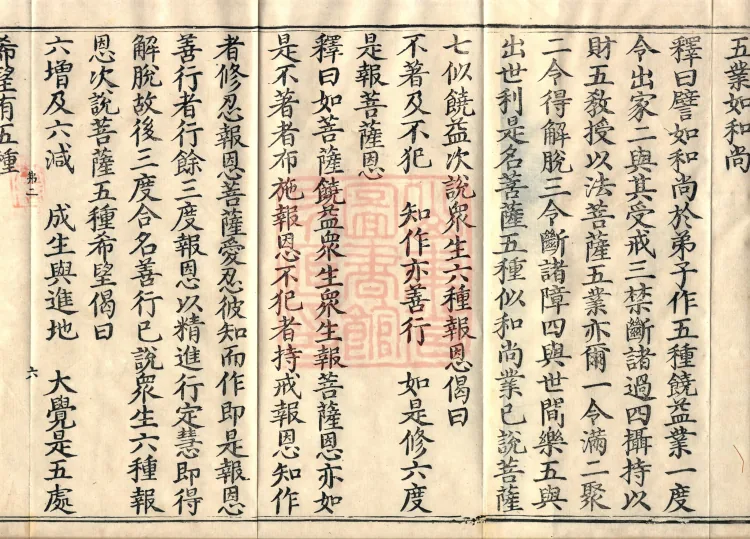 五業如和尚
釋曰譬如和尚於弟子作五種饒益業一度
令出家二與其受戒三禁斷諸過四攝持以
財五教授以法菩薩五業亦爾一令滿二聚
二令得解脫三令斷諸障四與世間樂五與
出世利是名菩薩五種似和尚業已說菩薩
七似饒益次說眾生六種報恩偈曰
不著及不犯 知作亦善行 如是修六度
是報菩薩恩
釋曰如菩薩饒益眾生眾生報菩薩恩亦如
是不著者布施報恩不犯者持戒報恩知作
者修忍報恩菩薩愛忍彼知而作即是報恩
善行者行餘三度報恩以精進行定慧即得
解脫故後三度合名善行已說眾生六種報
恩次說菩薩五種希望偈曰
六增及六減 成生與進地 大覺是五處
六
希望有五種